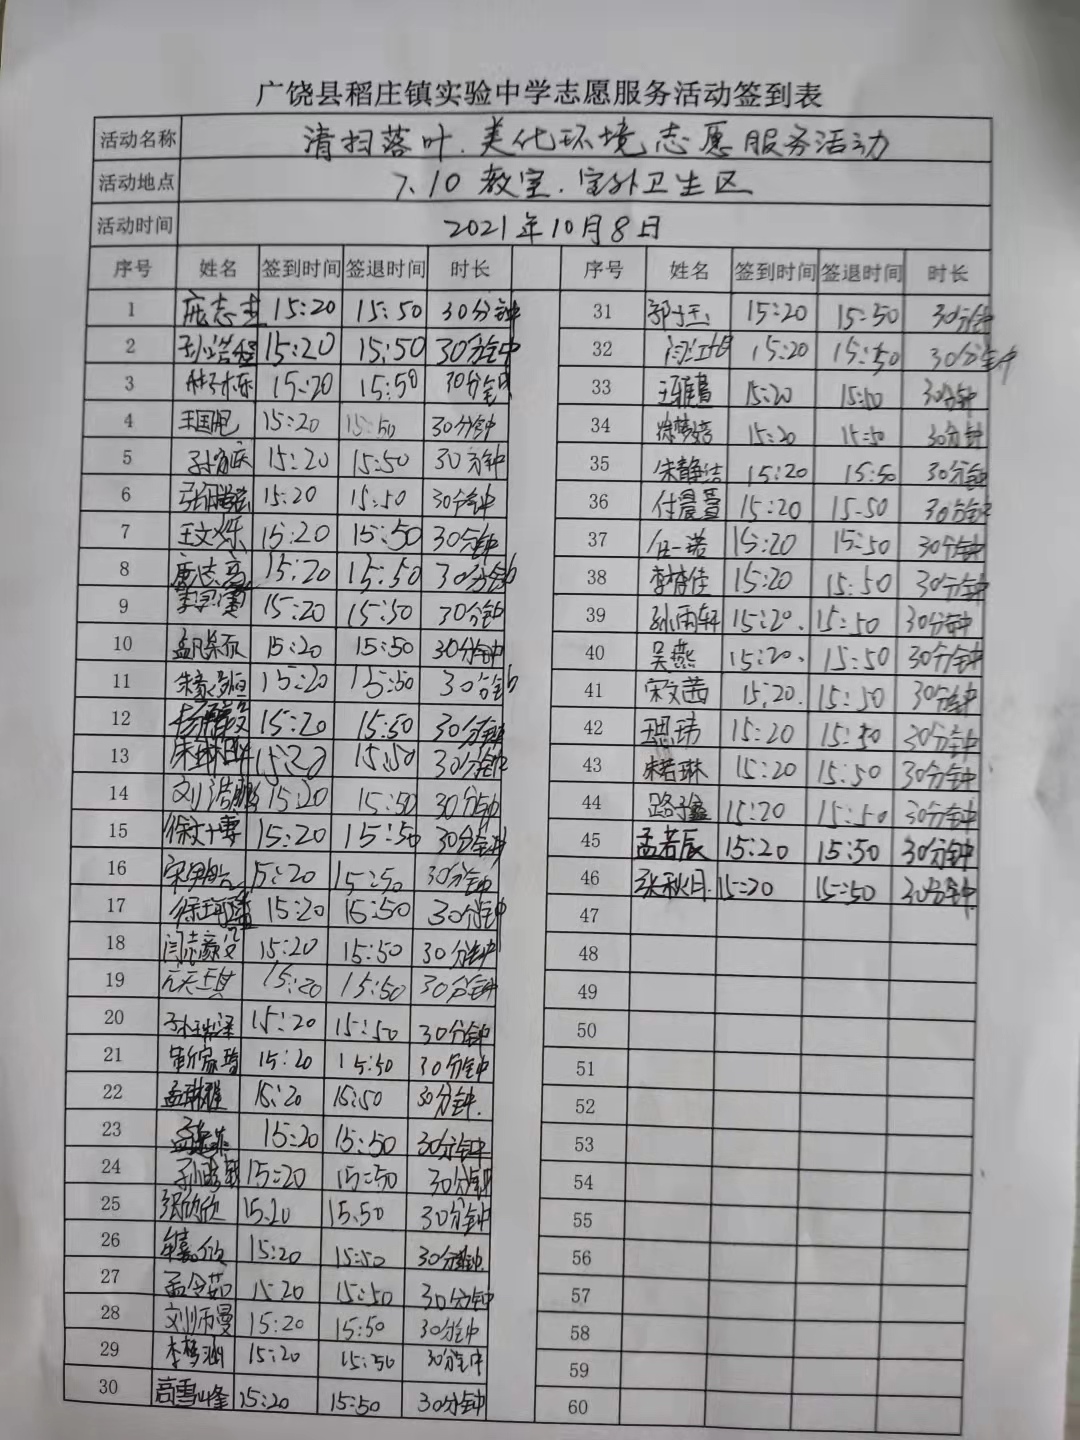 广饶县稻庄镇实验中学志愿服务活动签到表
活动名称 清扫落叶.美化环境志愿服务活动
活动地点 7.10教室.室外卫生区
活动时间 2021年10月8日
序号 姓名 签到时间 签退时间 时长 序号 姓名 签到时间 签退时间 时长
1 庞志 15:20 15:50 30分钟 31 郭 15:20 15:50 30分钟
2 孙浩程 15:20 15:50 30分钟 32 15:20 15:50 30分钟
3 15:20 15:50 30分钟 33 王雅 15:20 15:50 30分钟
4 王国 15:20 15:50 30分钟 34 徐梦 15:20 15:50 30分钟
5 15:20 15:50 30分钟 35 宋静洁 15:20 15:50 30分钟
6 15:20 15:50 30分钟 36 付晨 15:20 15:50 30分钟
7 王文 15:20 15:50 30分钟 37 任一诺 15:20 15:50 30分钟
8 15:20 15:50 30分钟 38 李 佳 15:20 15:50 30分钟
9 15:20 15:50 30分钟 39 孙雨轩 15:20. 15:50 30分钟
10 孟 15:20 15:50 30分钟 40 吴燕 15:20. 15:50 30分钟
11 15:20 15:50 30分钟 41 宋文茜 15:20. 15:50 30分钟
12 15:20 15:50 30分钟 42 王思玮 15:20 15:50 30分钟
13 15:20 15:50 30分钟 43 宋若琳 15:20 15:50 30分钟
14 刘浩鹏 15:20 15:50 30分钟 44 路子鑫 15:20 15:50 30分钟
15 徐 15:20 15:50 30分钟 45 孟若辰 15:20 15:50 30分钟
16 宋 15:20 15:50 30分钟 46 张秋月. 15:20 15:50 30分钟.
17 徐 15:20 15:50 30分钟 47
18 闫志 15:20 15:50 30分钟 48
19 15:20 15:50 30分钟 49
20 15:20 15:50 30分钟 50
21 靳家 15:20 15:50 30分钟 51
22 孟 15:20 15:50 30分钟. 52
23 孟 15:20 15:50 30分钟 53
24 15:20 15:50 30分钟 54
25 张欣欣 15:20 15:50 30分钟 55
26 15:20 15:50 30分钟. 56
27 孟令茹 15:20 15:50 30分钟 57
28 刘师曼 15:20 15:50 30分钟 58
29 李梦涵 15:20 15:50 30分钟 59
30 高雪峰 15:20 15:50 30分钟 60